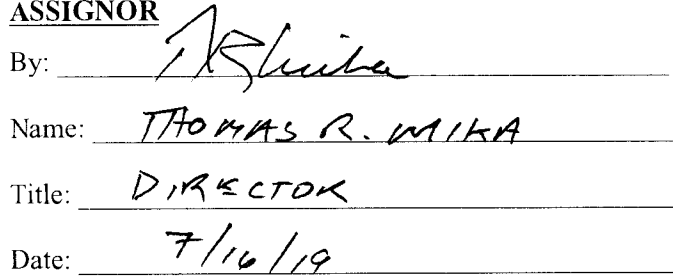 ASSIGNOR
By:
Name: THOMAS R. MIKA
Title: DIRECTOR
Date: 7/16/19